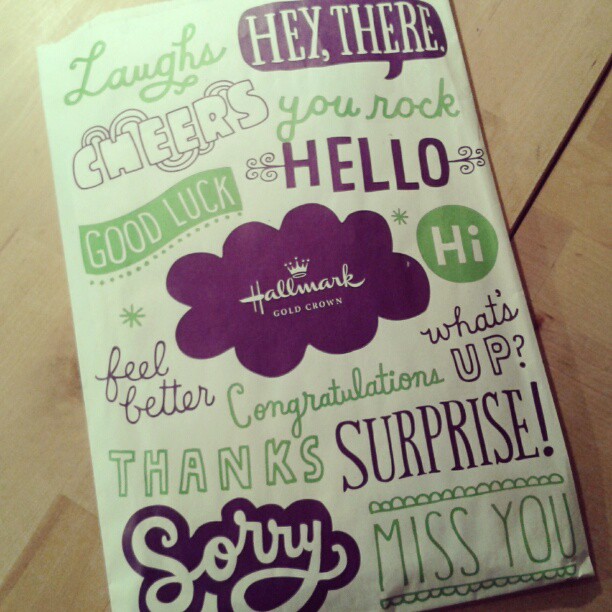 Laughs
HEY, THERE.
CHEERS
you rock
HELLO
GOOD LUCK
Hi
Hallmark
GOLD CROWN
feel
better
what's
UP?
Congratulations
THANKS
SURPRISE!
Sorry
MISS YOU